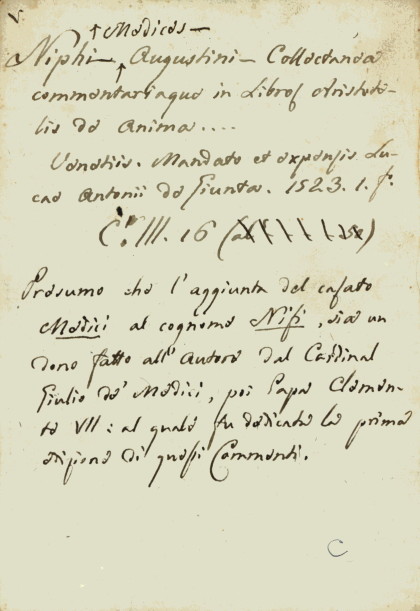 V.
Medices
Niphi Augustini - Collectanea
commentariaque in Libros Aristote-
lis de Anima....
Venetiis. Mandato et expensis Lu-
cae Antonii de Giunta. 1523. 1. f.
C. III. 16
Presumo che l'aggiunta del casato
Medici al cognome Nifi, sia un
dono fatto all'Autore dal Cardinal
Giulio de' Medici, poi Papa Clemen-
te VII: al quale fu dedicata la prima
edizione di questi Commenti.
C